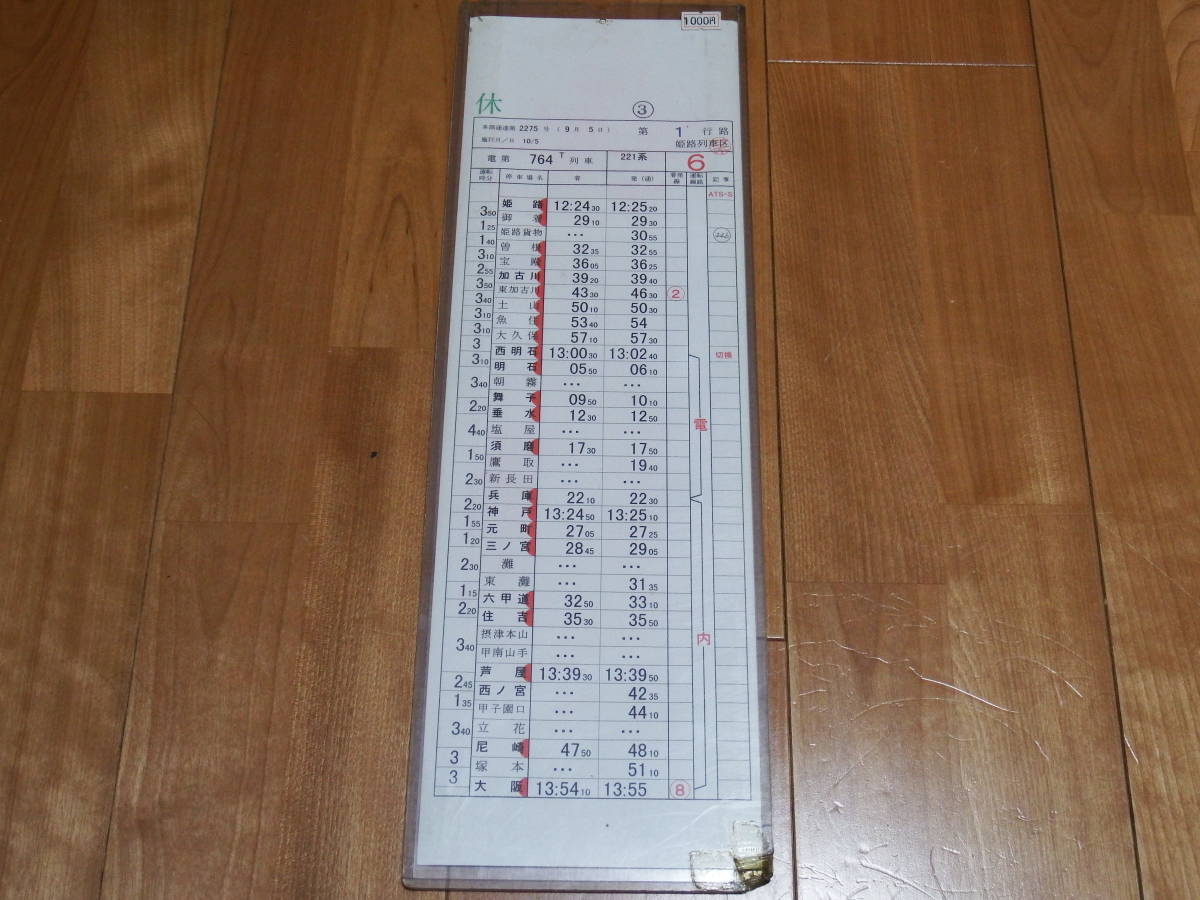 1000円
休
③
本路運達第 2275 号 (9月 5日) 第 1 行路
施行月/日 10/5 姫路列車区
電第 764T 列車 221系 6
運転時分 停車場名 着 発(通) 着発線 運転線路 記事
ATS-S
姫路 12:24 30 12:25 20
3 50
御着 29 10 29 30
1 25
姫路貨物 … 30 55
1 40
曽根 32 35 32 55
3 10
宝殿 36 05 36 25
2 55
加古川 39 20 39 40
3 50
東加古川 43 30 46 30 ②
3 40
土山 50 10 50 30
3 10
魚住 53 40 54
3 10
大久保 57 10 57 30
3
西明石 13:00 30 13:02 40 切換
3 10
明石 05 50 06 10
朝霧 … …
3 40
舞子 09 50 10 10
2 20
垂水 12 30 12 50
塩屋 … … 電
4 40
須磨 17 30 17 50
1 50
鷹取 … 19 40
新長田 … …
2 30
兵庫 22 10 22 30
2 20
神戸 13:24 50 13:25 10
1 55
元町 27 05 27 25
1 20
三ノ宮 28 45 29 05
灘 … …
2 30
東灘 … 31 35
1 15
六甲道 32 50 33 10
2 20
住吉 35 30 35 50
摂津本山 … … 内
3 40
甲南山手 … …
芦屋 13:39 30 13:39 50
2 45
西ノ宮 … 42 35
1 35
甲子園口 … 44 10
立花 … …
3 40
尼崎 47 50 48 10
3
塚本 … 51 10
3
大阪 13:54 10 13:55 ⑧